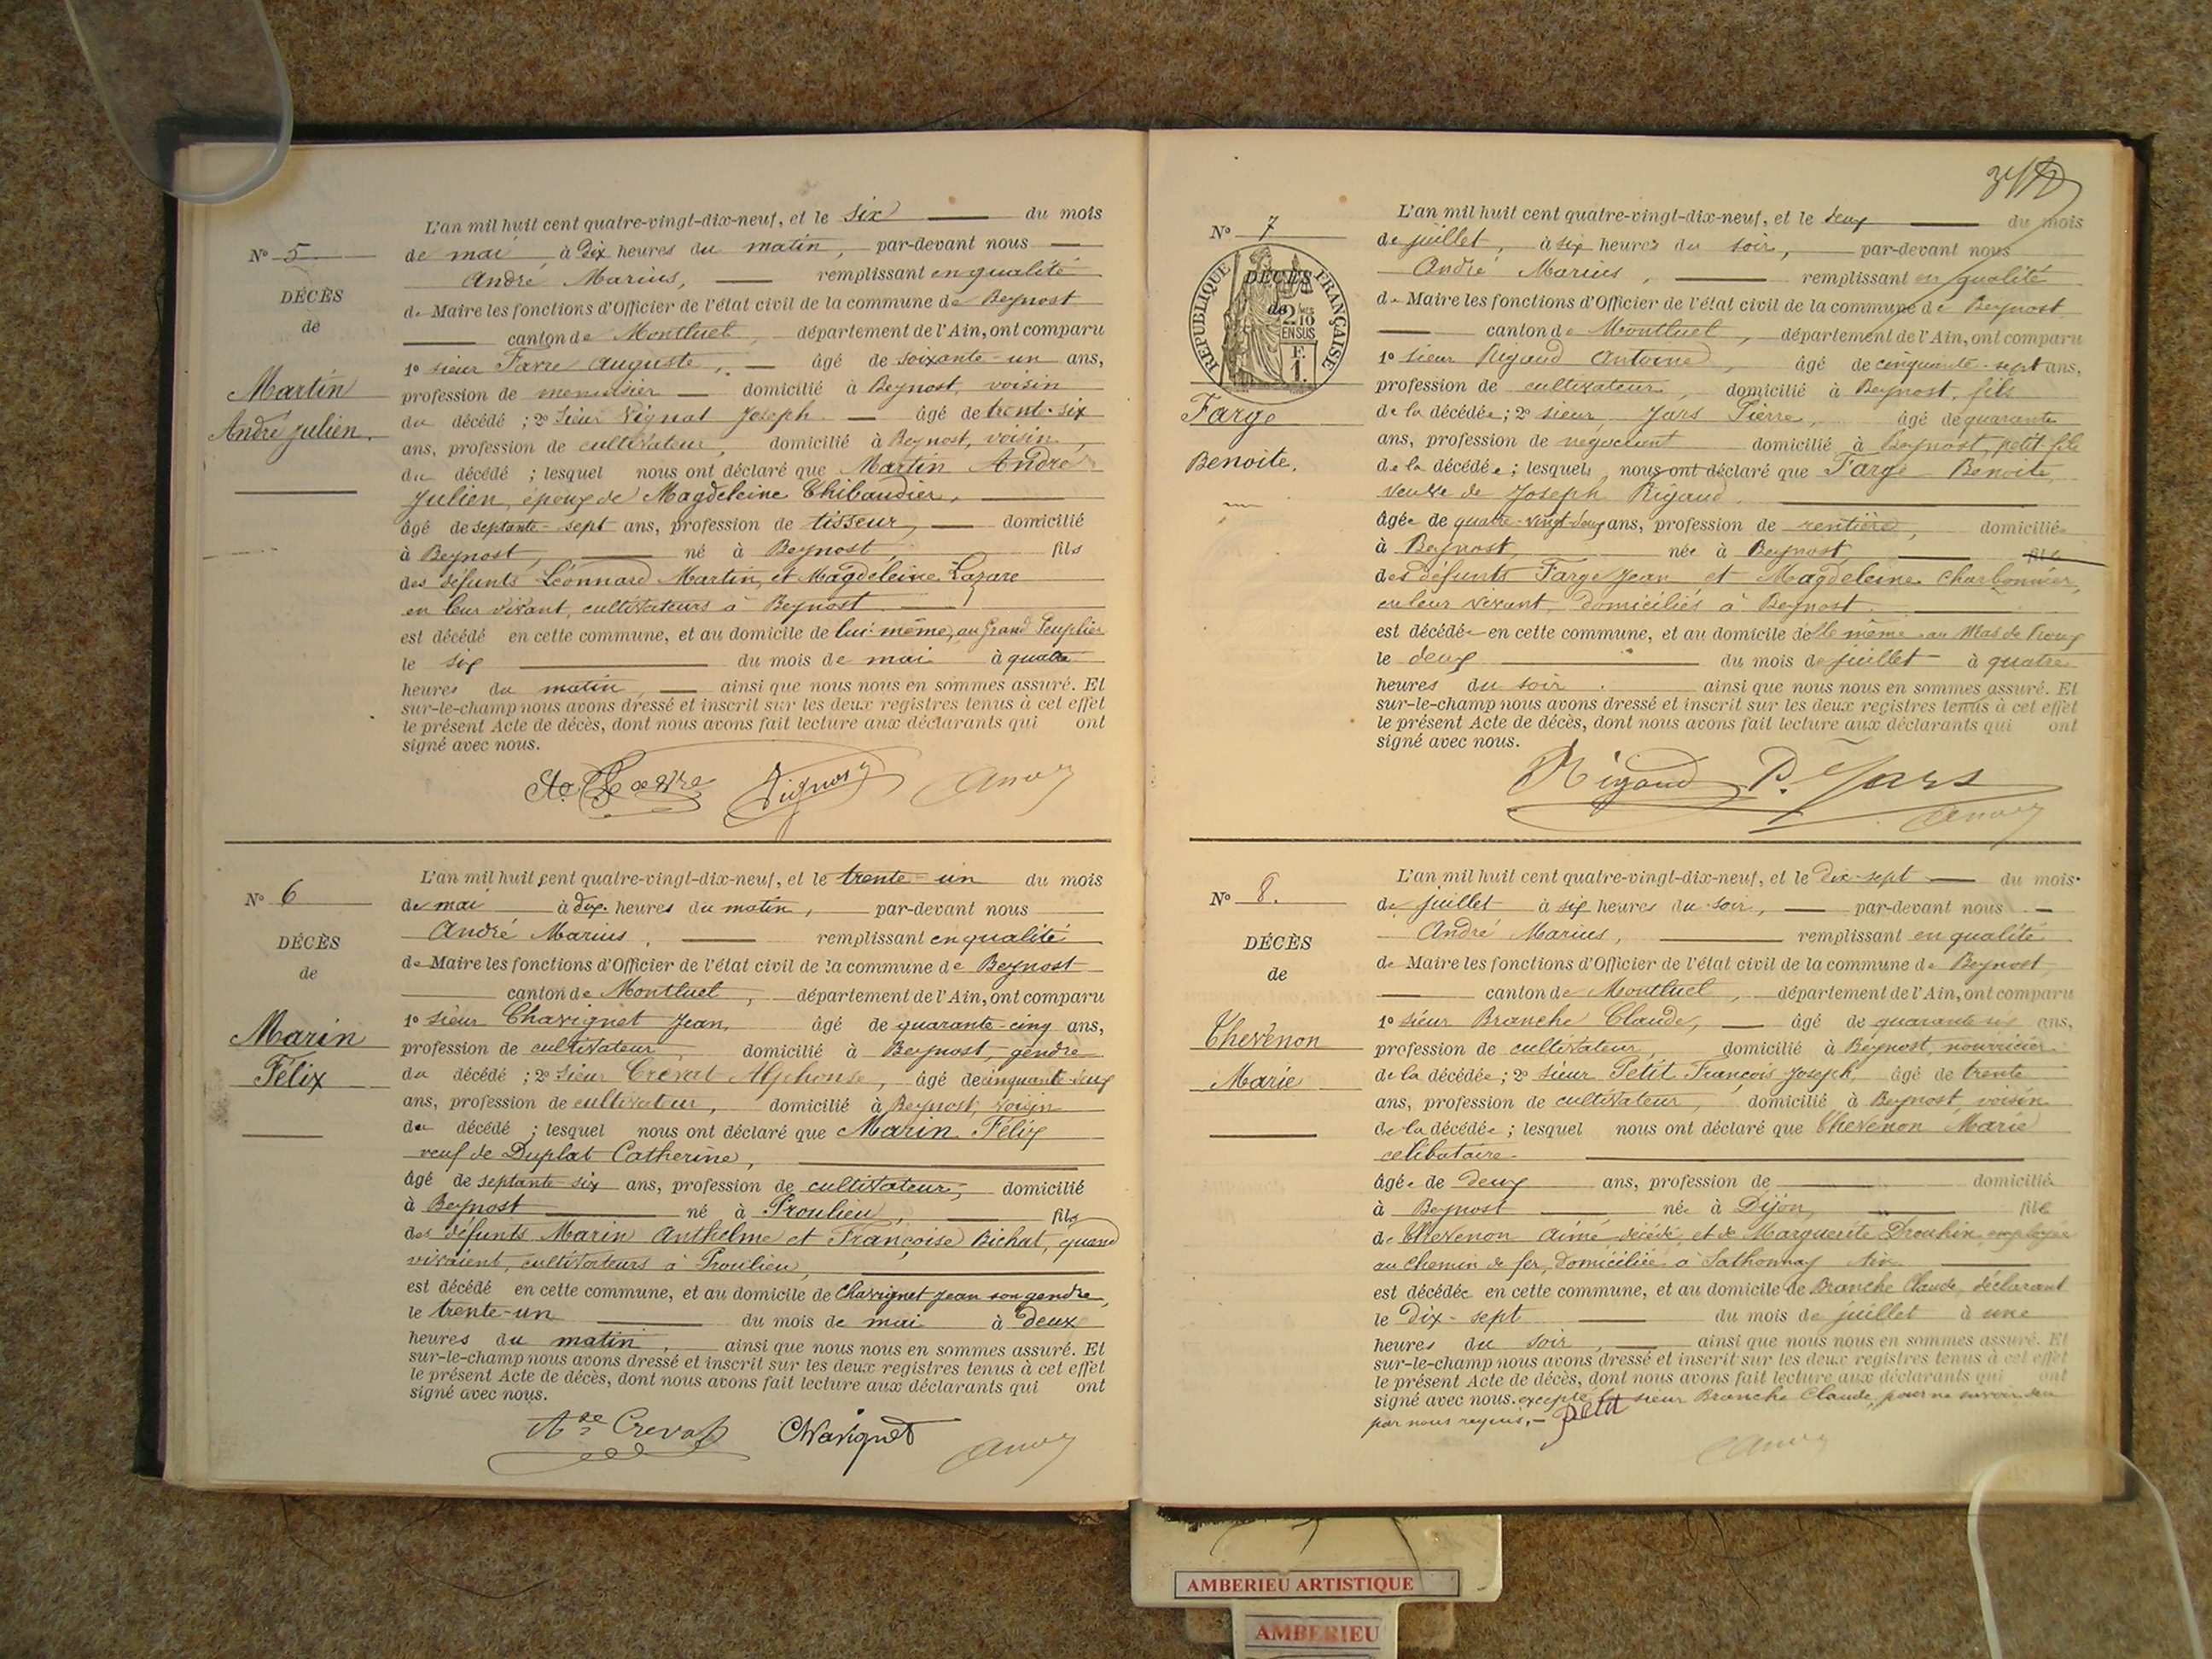 L'an mil huit cent quatre-vingt-dix-neuf, et le six du mois
Nº 5 de mai à dix heures du matin, par-devant nous
André Marius, remplissant en qualité
DÉCÈS
de Maire les fonctions d'Officier de l'état civil de la commune de Beynost
de
canton de Montluel, département de l'Ain, ont comparu
1º sieur Favre Auguste, âgé de soixante-un ans,
Martin
profession de menuisier domicilié à Beynost, voisin
du décédé ; 2º sieur Vignat Joseph âgé de trente-six
André Julien.
ans, profession de cultivateur, domicilié à Beynost, voisin,
du décédé ; lesquel nous ont déclaré que Martin André
Julien, époux de Magdeleine Thibaudier,
âgé de septante-sept ans, profession de tisseur, domicilié
à Beynost, né à Beynost, fils
des défunts Léonnard Martin, et Magdeleine Lazare
en leur vivant, cultivateurs à Beynost.
est décédé en cette commune, et au domicile de lui-même, au Grand Peuplier
le six du mois de mai à quatre
heures du matin, ainsi que nous nous en sommes assuré. Et
sur-le-champ nous avons dressé et inscrit sur les deux registres tenus à cet effet
le présent Acte de décès, dont nous avons fait lecture aux déclarants qui ont
signé avec nous.
Favre Vignat
L'an mil huit cent quatre-vingt-dix-neuf, et le trente-un du mois
Nº 6 de mai à dix heures du matin, par-devant nous
André Marius, remplissant en qualité
DÉCÈS
de Maire les fonctions d'Officier de l'état civil de la commune de Beynost
de
canton de Montluel, département de l'Ain, ont comparu
1º sieur Chavignet Jean, âgé de quarante-cinq ans,
Marin
profession de cultivateur, domicilié à Beynost, gendre
Félix
du décédé ; 2º sieur Crevat Alphonse, âgé de cinquante-deux
ans, profession de cultivateur, domicilié à Beynost, voisin
du décédé ; lesquel nous ont déclaré que Marin Félix
veuf de Duplat Catherine,
âgé de septante six ans, profession de cultivateur, domicilié
à Beynost né à Proulieu, fils
des défunts Marin Anthelme et Françoise Bichat, quand
vivaient, cultivateurs à Proulieu,
est décédé en cette commune, et au domicile de Chavignet Jean son gendre,
le trente-un du mois de mai à deux
heures du matin, ainsi que nous nous en sommes assuré. Et
sur-le-champ nous avons dressé et inscrit sur les deux registres tenus à cet effet
le présent Acte de décès, dont nous avons fait lecture aux déclarants qui ont
signé avec nous.
Crevat Chavignet
L'an mil huit cent quatre-vingt-dix-neuf, et le deux du mois
Nº 7 de juillet, à six heures du soir, par-devant nous
André Marius, remplissant en qualité
RÉPUBLIQUE FRANÇAISE
DÉCÈS
de
2/10 EN SUS
F. 1.
de Maire les fonctions d'Officier de l'état civil de la commune de Beynost
canton de Montluel, département de l'Ain, ont comparu
1º sieur Rigaud Antoine, âgé de cinquante-sept ans,
profession de cultivateur, domicilié à Beynost, fils
Farge
de la décédée ; 2º sieur Jars Pierre, âgé de quarante
ans, profession de négociant domicilié à Beynost, petit fils
Benoite.
de la décédée ; lesquels, nous ont déclaré que Farge Benoite,
veuve de Joseph Rigaud
âgée de quatre-vingt-deux ans, profession de rentière, domiciliée
à Beynost, née à Beynost fille
des défunts Farge Jean et Magdeleine Charbonnier,
en leur vivant, domiciliés à Beynost.
est décédée en cette commune, et au domicile d'elle même au Mas de
le deux du mois de juillet à quatre
heures du soir. ainsi que nous nous en sommes assuré. Et
sur-le-champ nous avons dressé et inscrit sur les deux registres tenus à cet effet
le présent Acte de décès, dont nous avons fait lecture aux déclarants qui ont
signé avec nous.
Rigaud P. Jars
L'an mil huit cent quatre-vingt-dix-neuf, et le dix-sept du mois
Nº 8. de juillet à six heures du soir, par-devant nous
André Marius, remplissant en qualité
DÉCÈS
de Maire les fonctions d'Officier de l'état civil de la commune de Beynost
de
canton de Montluel, département de l'Ain, ont comparu
1º sieur Branche Claude, âgé de quarante six ans,
Chevenon
profession de cultivateur, domicilié à Beynost, nourricier
Marie
de la décédée ; 2º sieur Petit François Joseph, âgé de trente
ans, profession de cultivateur, domicilié à Beynost, voisin
de la décédée ; lesquel nous ont déclaré que Chevenon Marie
célibataire
âgée de deux ans, profession de domiciliée
à Beynost née à Dijon, fille
de Chevenon Aimé décédé, et de Marguerite Drouhin employée
au Chemin de fer, domiciliée à Sathonnay Ain
est décédée en cette commune, et au domicile de Branche Claude, déclarant
le dix-sept du mois de juillet à une
heures du soir, ainsi que nous nous en sommes assuré. Et
sur-le-champ nous avons dressé et inscrit sur les deux registres tenus à cet effet
le présent Acte de décès, dont nous avons fait lecture aux déclarants qui ont
signé avec nous. excepté le sieur Branche Claude, pour ne savoir de
par nous requis, - Petit
AMBERIEU ARTISTIQUE
AMBERIEU